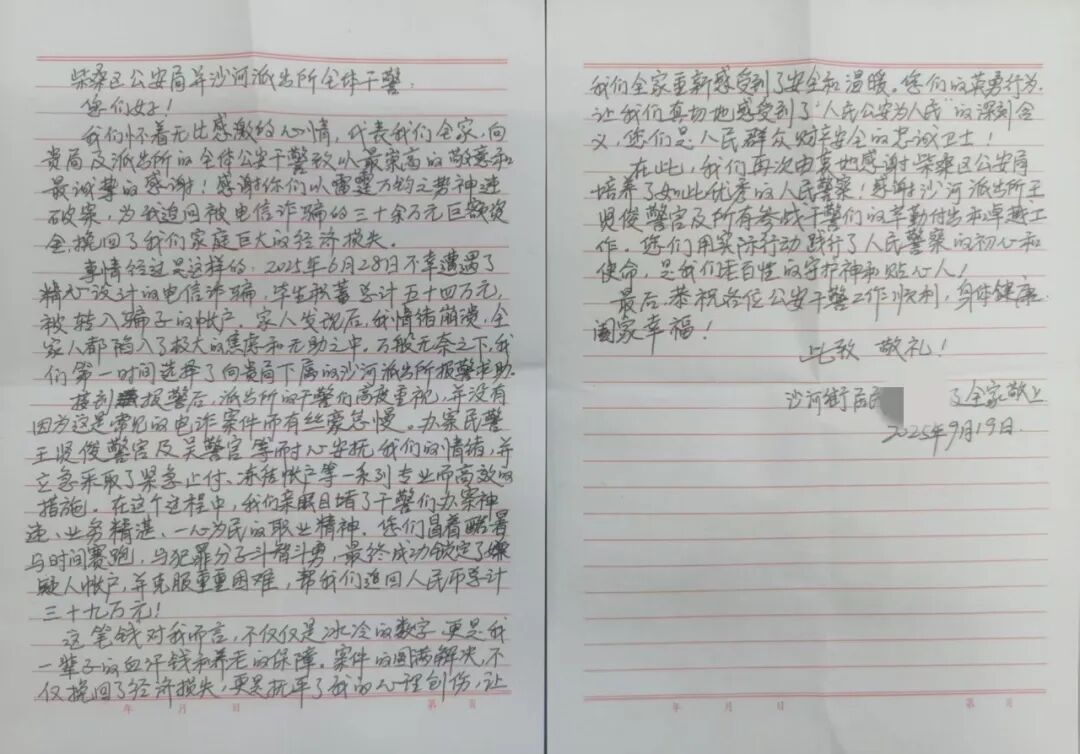 柴桑区公安局并沙河派出所全体干警:
您们好!
我们怀着无比感激的心情,代表我们全家,向
贵局及派出所的全体公安干警致以最崇高的敬意和
最诚挚的感谢!感谢你们以雷霆万钧之势神速
破案,为我追回被电信诈骗的三十余万元巨额资
金,挽回了我们家庭巨大的经济损失。
事情经过是这样的:2025年6月28日不幸遭遇了
精心设计的电信诈骗,毕生积蓄总计五十四万元,
被转入骗子的帐户。家人发现后,我情绪崩溃,全
家人都陷入了极大的焦虑和无助之中。万般无奈之下,我
们第一时间选择了向贵局下属的沙河派出所报警求助.
接到报警后,派出所的干警们高度重视,并没有
因为这是常见的电诈案件而有丝豪怠慢。办案民警
王贤俊警官及吴警官等耐心安抚我们的情绪,并
立急采取了紧急止付、冻结帐户等一系列专业而高效的
措施。在这个过程中,我们亲眼目堵了干警们办案神
速、业务精湛、一心为民的职业精神.您们冒着酷暑
与时间赛跑,与犯罪分子斗智斗勇,最终成功锁定了嫌
疑人帐户,并克服重重困难,帮我们追回人民币总计
三十九万元!
这笔钱对我而言,不仅仅是冰冷的数字,更是我
一辈子的血汗钱和养老的保障。案件的圆满解决,不
仅挽回了经济损失,更是抚平了我的心理创伤,让
年 月 日 第 页
我们全家重新感受到了安全和温暖。您们的英勇行为,
让我们真切地感受到了“人民公安为人民”的深刻含
义,您们是人民群众财产安全的忠诚卫士!
在此,我们再次由衷地感谢柴桑区公安局
培养了如此优秀的人民警察!感谢沙河派出所王
贤俊警官及所有参战干警们的辛勤付出和卓越工
作。您们用实际行动践行了人民警察的初心和
使命,是我们老百姓的守护神和贴心人!
最后,恭祝各位公安干警工作顺利,身体健康,
阖家幸福!
此致 敬礼!
沙河街居民 及全家敬上
2025年9月19日.
年 月 日 第 页